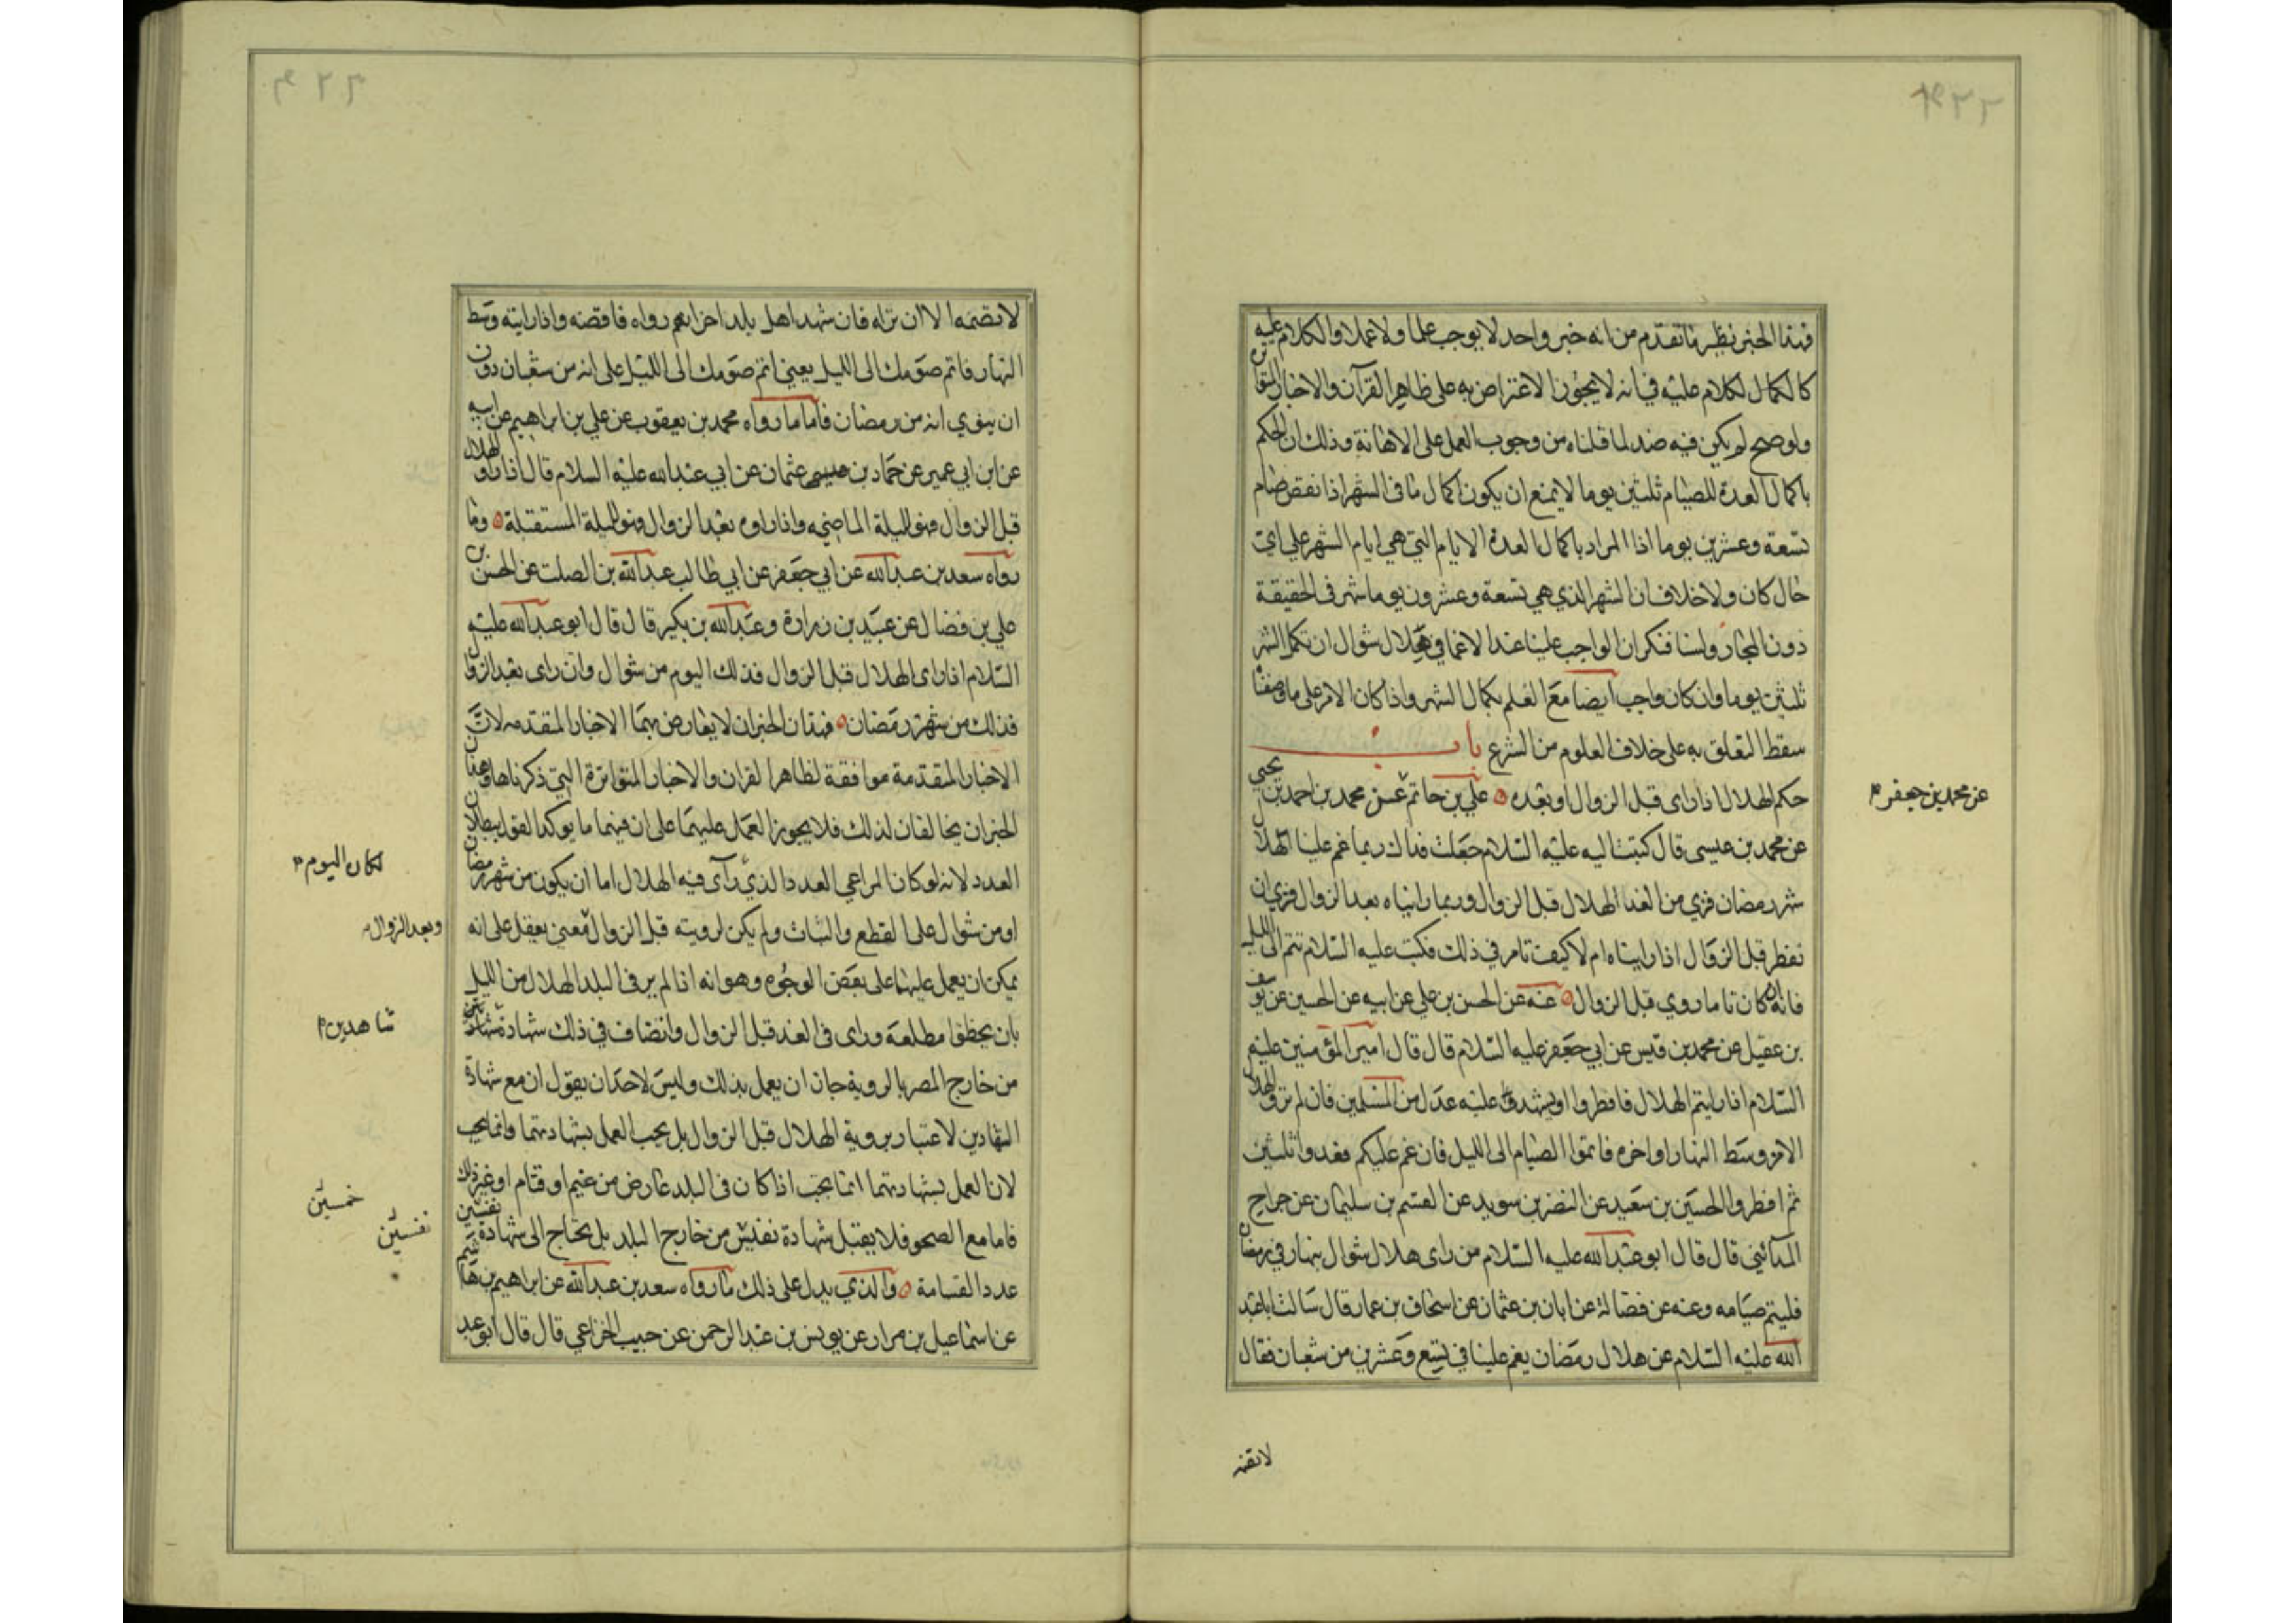 فهذا الخبر نظير ما تقدم من انه خبر واحد لا يوجب علما ولا عملا والكلام عليه
كالكلام عليه في انه لا يجوز الاعتراض به على ظاهر القرآن والاخبار
ولو صح لم يكن فيه ضد لما قلناه من وجوب العمل على الاهلة وذلك ان الحكم
باكمال العدة للصيام ثلثين يوما لا يمنع ان يكون اكمال ما في الشهر اذا نقص صيام
تسعة وعشرين يوما اذا المراد باكمال العدة الايام التي هي ايام الشهر على اي
حال كان ولا خلاف ان الشهر الذي هي تسعة وعشرون يوما شهر في الحقيقة
دون المجاز ولسنا ننكر ان الواجب علينا عند الاغماء في هلال شوال ان نكمل الشهر
ثلثين يوما وان كان واجب ايضا مع العلم بكمال الشهر واذا كان الامر على ما وصفنا
سقط التعلق به على خلاف المعلوم من الشرع باب
حكم الهلال اذا رأى قبل الزوال او بعده علي بن حاتم عن محمد بن احمد بن يحيى
عن محمد بن جعفر
عن محمد بن عيسى قال كتبت اليه عليه السلام جعلت فداك ربما غم علينا الهلال
شهر رمضان فنرى من الغد الهلال قبل الزوال وربما رايناه بعد الزوال فنرى ان
نفطر قبل الزوال اذا رايناه ام لا كيف تامر في ذلك فكتب عليه السلام تتم الى الليل
فانه ان كان تاما روي قبل الزوال عنه عن الحسن بن علي عن ابيه عن الحسين عن يوسف
بن عقيل عن محمد بن قيس عن ابي جعفر عليه السلام قال قال امير المؤمنين عليه
السلام اذا رايتم الهلال فافطروا او يشهد عليه عدل من المسلمين فان لم تروا الهلال
الا من وسط النهار او اخره فاتموا الصيام الى الليل فان غم عليكم فعدوا ثلثين
ثم افطروا الحسين بن سعيد عن النضر بن سويد عن القسم بن سليمان عن جراح
المدائني قال قال ابو عبد الله عليه السلام من راى هلال شوال بنهار في رمضان
فليتم صيامه وعنه عن فضالة عن ابان بن عثمان عن اسحاق بن عمار قال سالت ابا عبد
الله عليه السلام عن هلال رمضان يغم علينا في تسع وعشرين من شعبان فقال
لا تصمه
لا تصمه الا ان تراه فان شهد اهل بلد اخر انهم رواه فاقضه واذا رايته وسط
النهار فاتم صومك الى الليل يعني اتم صومك الى الليل على انه من شعبان دون
ان ينوي انه من رمضان فاما ما رواه محمد بن يعقوب عن علي بن ابراهيم عن ابيه
عن ابن ابي عمير عن حماد بن عيسى عثمان عن ابي عبد الله عليه السلام قال اذا راوا الهلال
قبل الزوال فهو لليلة الماضيه واذا راوه بعد الزوال فهو لليلة المستقبلة وما
رواه سعد بن عبد الله عن ابي جعفر عن ابي طالب عبد الله بن الصلت عن الحسن بن
علي بن فضال عن عبيد بن زرارة وعبد الله بن بكير قال قال ابو عبد الله عليه
السلام اذا راى الهلال قبل الزوال فذلك اليوم من شوال وان راى بعد الزوال
فذلك من شهر رمضان فهذان الخبران لا يعارض بهما الاخبار المقدمه لان
الاخبار المقدمة موافقة لظاهر القران والاخبار المتواترة التي ذكرناها وهذان
الخبران يخالفان لذلك فلا يجوز العمل عليهما على ان فيهما ما يوكد القول ببطلان
العدد لانه لو كان المراعي العدد الذي رآى فيه الهلال اما ان يكون من شهر رمضان
لكان اليوم
او من شوال على القطع والثبات ولم يكن لرويته قبل الزوال معنى يعقل على انه
وبعد الزوال
يمكن ان يعمل عليهما على بعض الوجوه وهو انه اذا لم ير في البلد الهلال من الليل
بان مطلعه وراى في الغد قبل الزوال وانضاف في ذلك شهادة
شاهدين
من خارج المصر بالروية جاز ان يعمل بذلك وليس لاحد ان يقول ان مع شهادة
الشهادين لا عتبار بروية الهلال قبل الزوال بل يجب العمل بشهادتهما وانما يجب
لان العمل بشهادتهما انما يجب اذا كان في البلد عارض من غيم او قتام او غير ذلك
خمسين
نفسين
فاما مع الصحو فلا يقبل شهادة نفسين من خارج البلد بل يحتاج الى شهادة
عدد القسامة والذي يدل على ذلك ما رواه سعد بن عبد الله عن ابراهيم بن هاشم
عن اسماعيل بن مرار عن يونس بن عبد الرحمن عن حبيب الخزاعي قال قال ابو عبد